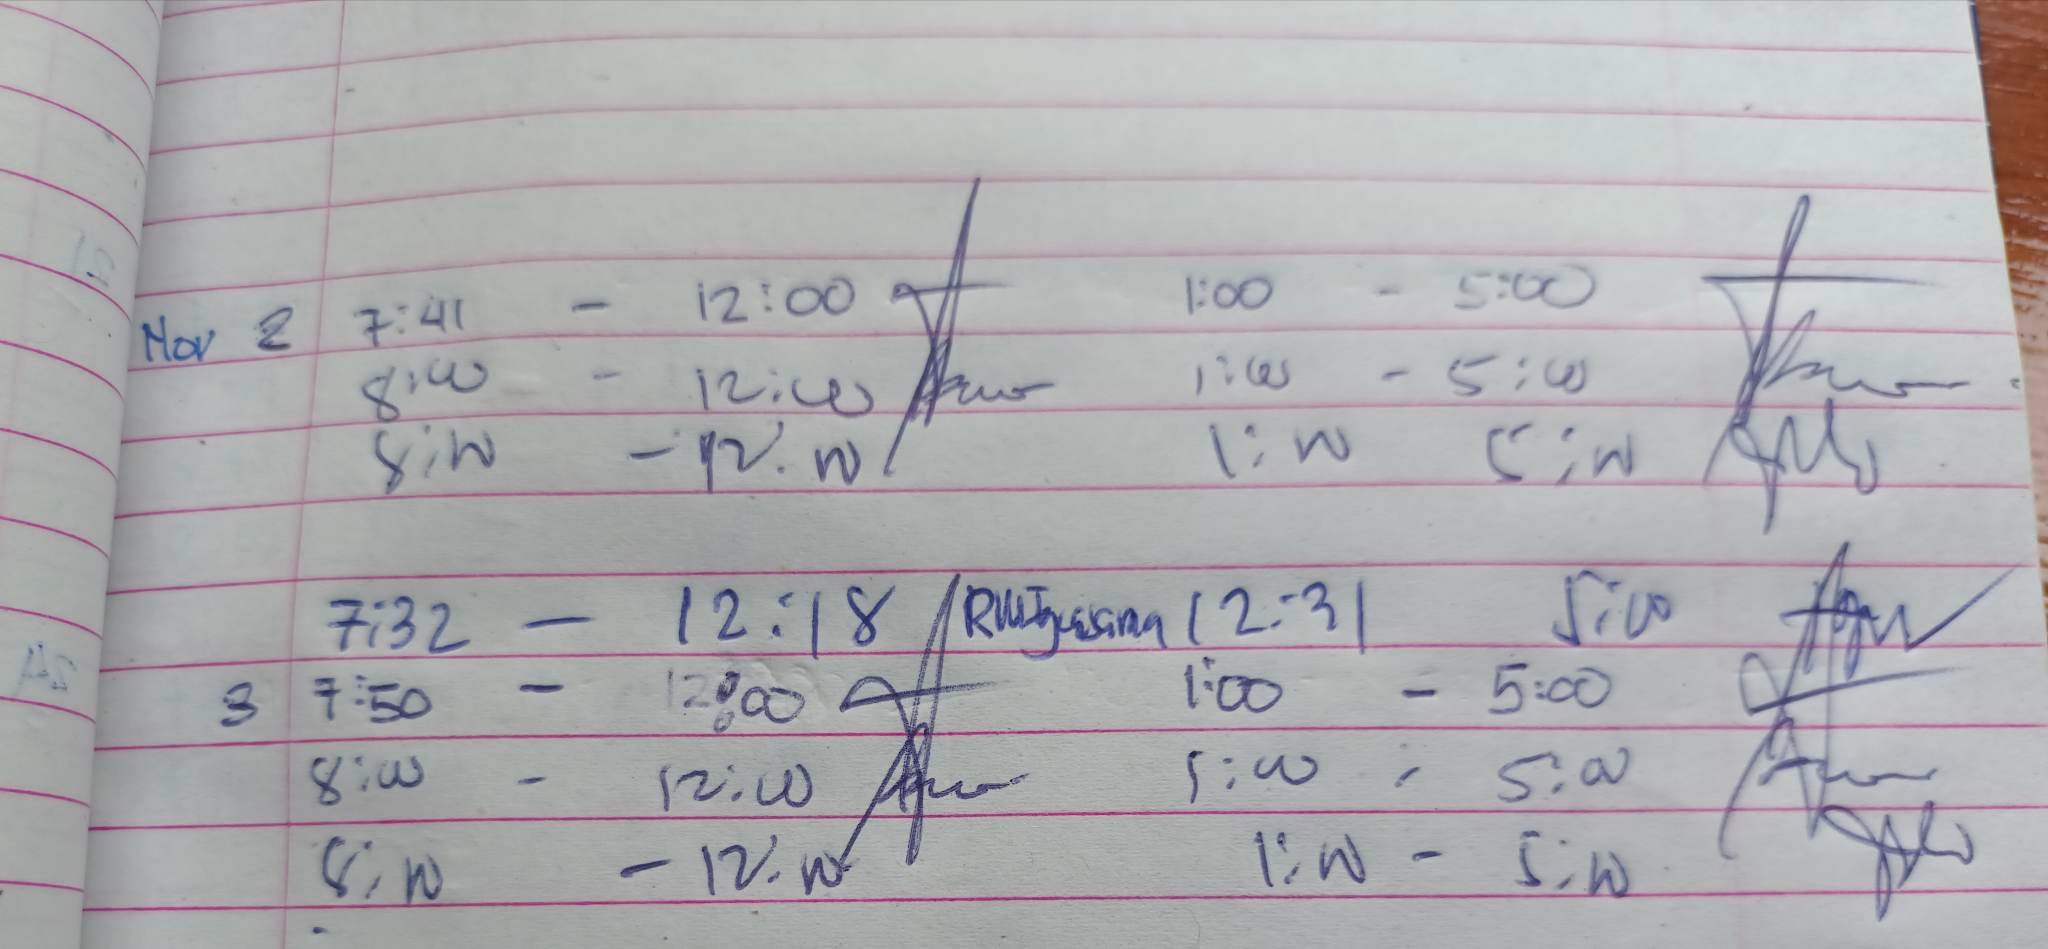 Nov 2 7:41 - 12:00 1:00 - 5:00
8:00 - 12:00 1:00 - 5:00
8:00 - 12:00 1:00 5:00
7:32 - 12:18 12:31 5:00
3 7:50 - 12:00 1:00 - 5:00
8:00 - 12:00 1:00 - 5:00
8:00 - 12:00 1:00 - 5:00